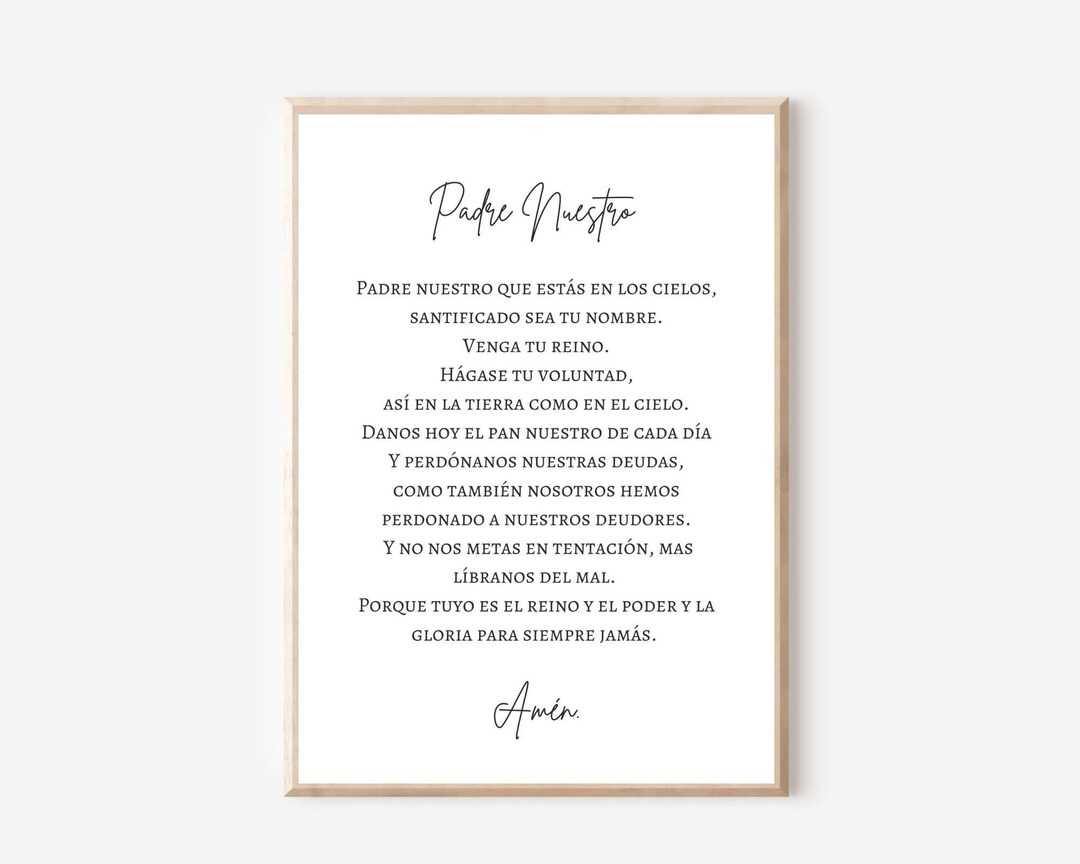 Padre Nuestro
Padre nuestro que estás en los cielos,
santificado sea tu nombre.
Venga tu reino.
Hágase tu voluntad,
así en la tierra como en el cielo.
Danos hoy el pan nuestro de cada día
Y perdónanos nuestras deudas,
como también nosotros hemos
perdonado a nuestros deudores.
Y no nos metas en tentación, mas
líbranos del mal.
Porque tuyo es el reino y el poder y la
gloria para siempre jamás.
Amén.